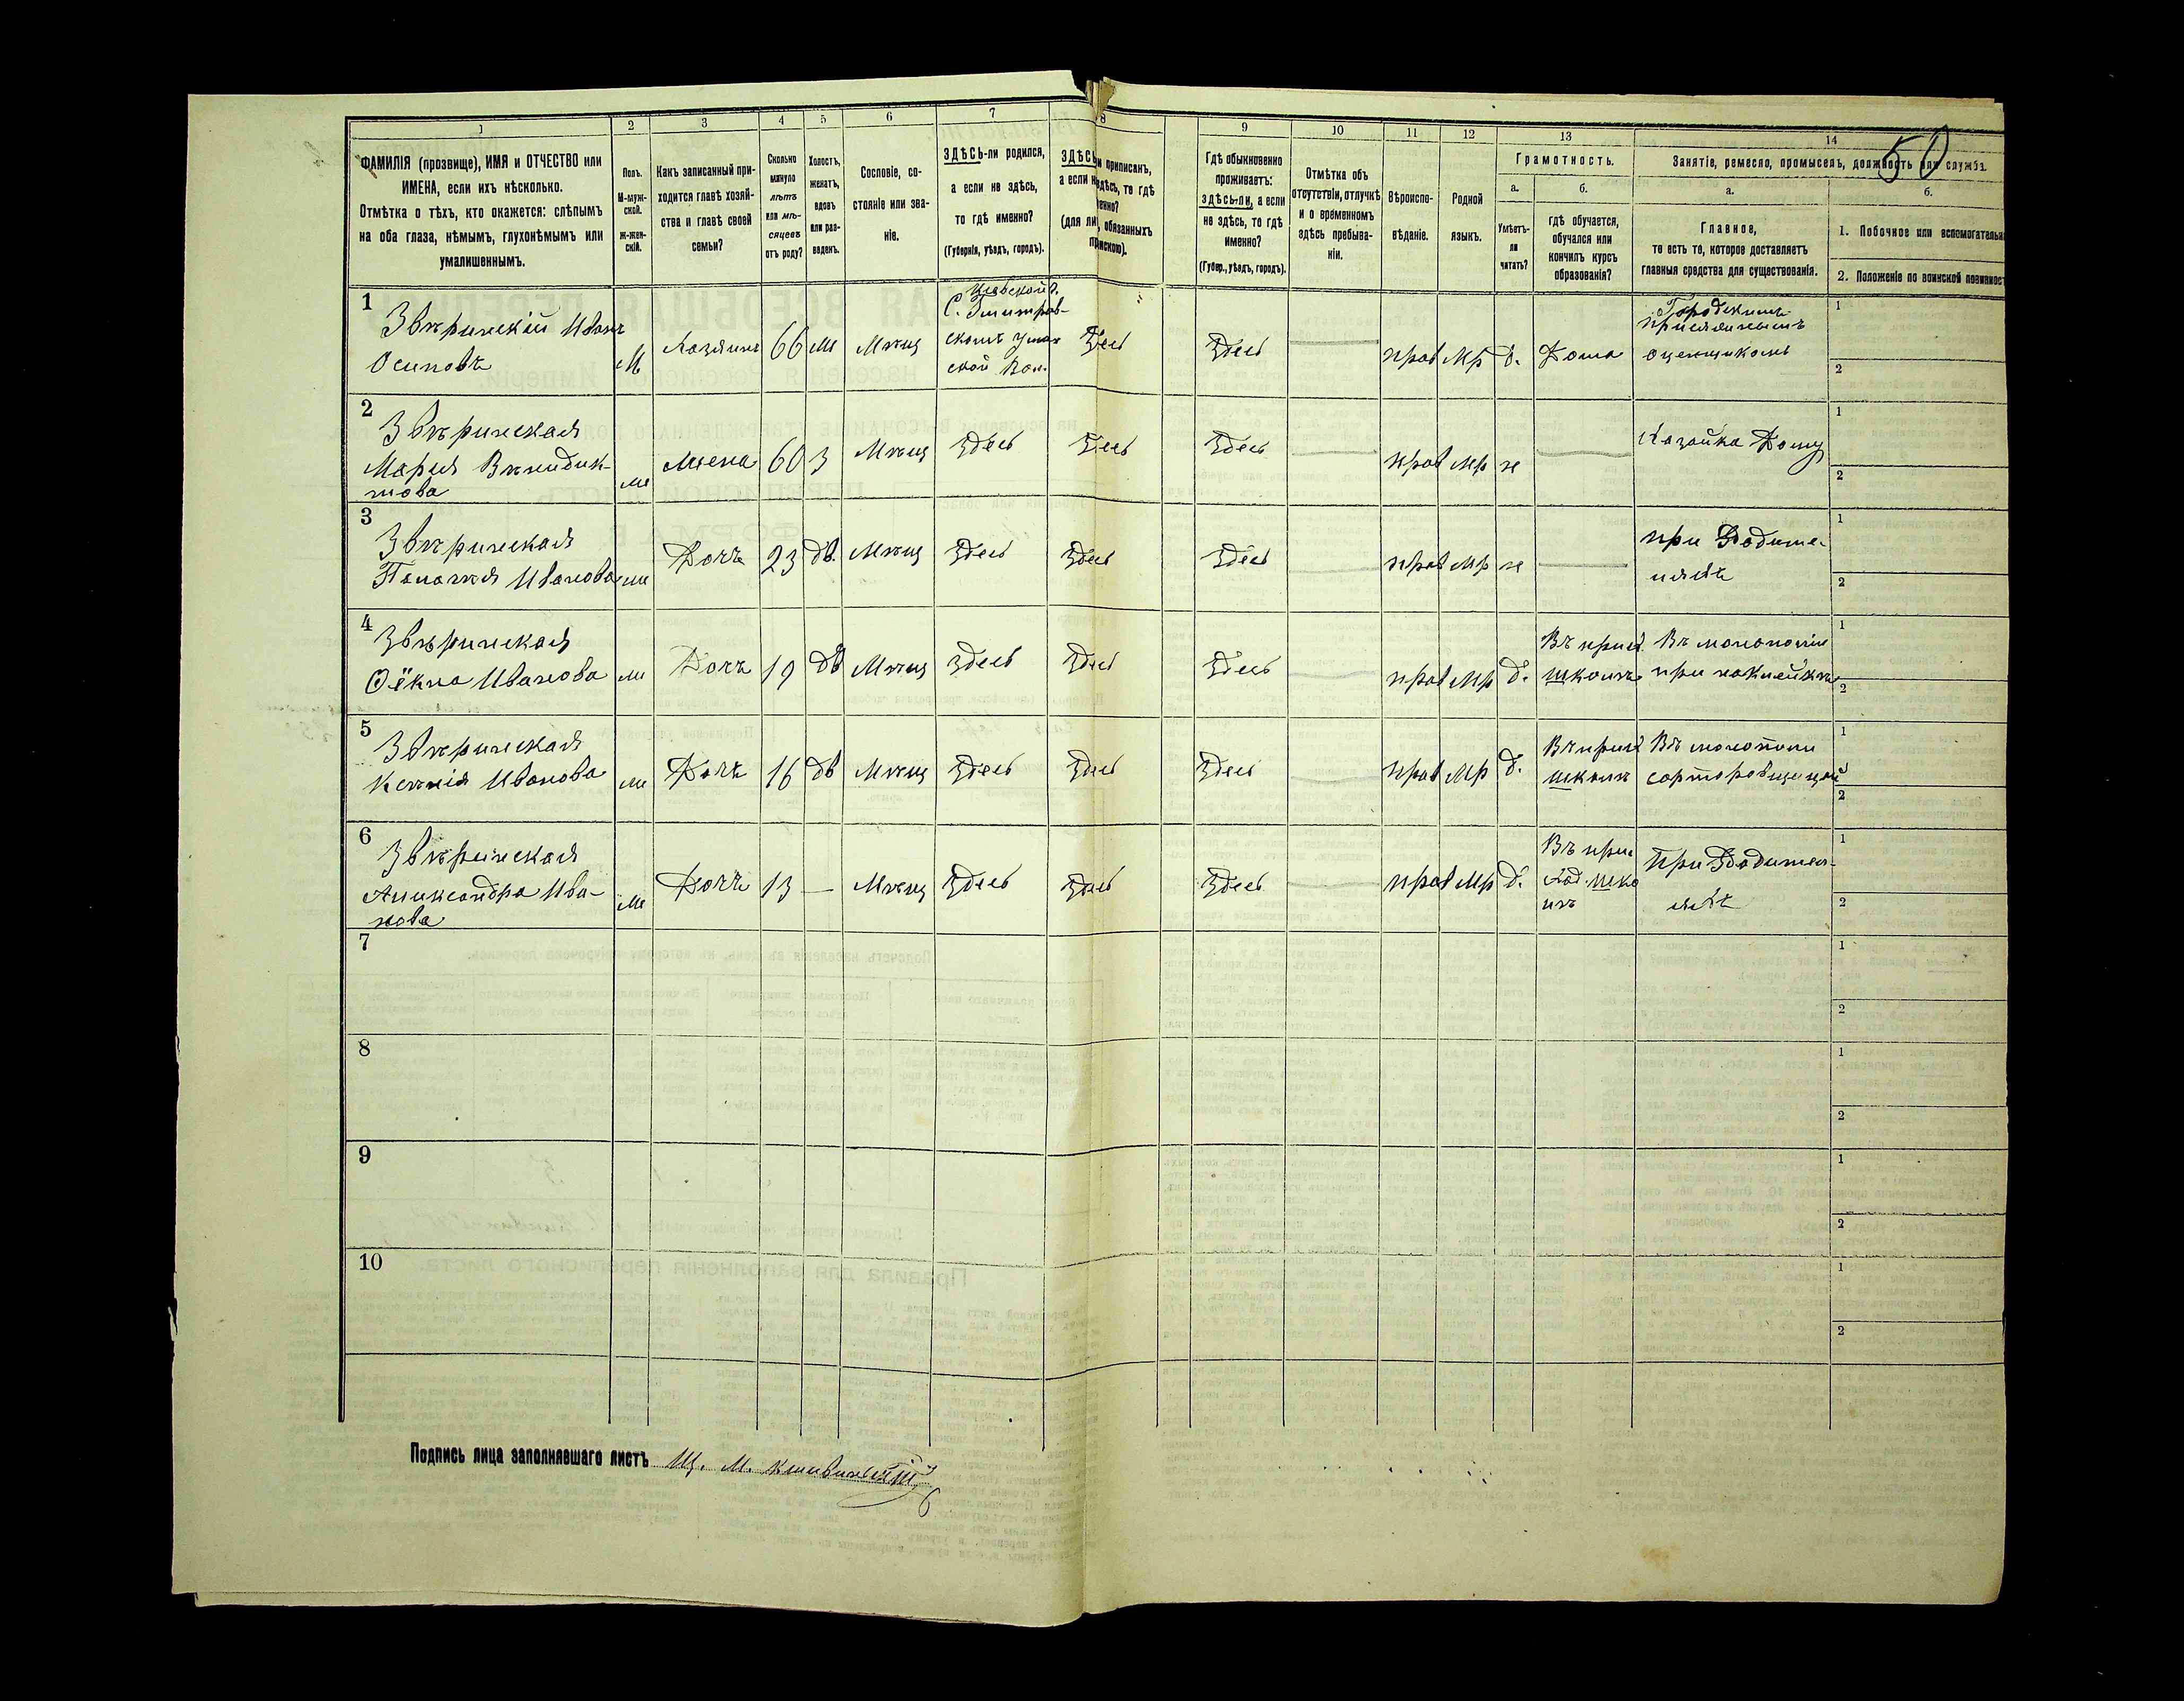 1 2 3 4 5 6 7 8 9 10 11 12 13 14
50
ФАМИЛІЯ (прозвище), ИМЯ и ОТЧЕСТВО или
ИМЕНА, если ихъ нѣсколько.
Отмѣтка о тѣхъ, кто окажется: слѣпымъ
на оба глаза, нѣмымъ, глухонѣмымъ или
умалишеннымъ.
Полъ.
М-муж-
ской.
ж-жен-
скій.
Какъ записанный при-
ходится главѣ хозяй-
ства и главѣ своей
семьи?
Сколько
минуло
лѣтъ
или мѣ-
сяцевъ
отъ роду?
Холостъ,
женатъ,
вдовъ
или раз-
веденъ.
Сословіе, со-
стояніе или зва-
ніе.
ЗДѢСЬ-ли родился,
а если не здѣсь,
то гдѣ именно?
(Губернія, уѣздъ, городъ).
ЗДѢСЬ и приписанъ,
а если н здѣсь, то гдѣ
енно?
(для ли, обязанныхъ
припискою).
Гдѣ обыкновенно
проживаетъ:
здѣсь-ли, а если
не здѣсь, то гдѣ
именно?
(Губер., уѣздъ, городъ).
Отмѣтка объ
отсутствіи, отлучкѣ
и о временномъ
здѣсь пребыва-
ніи.
Вѣроиспо-
вѣданіе.
Родной
языкъ.
Грамотность.
а.
Умѣетъ-
ли
читать?
б.
гдѣ обучается,
обучался или
кончилъ курсъ
образованія?
Занятіе, ремесло, промыселъ, должность или служба.
а.
Главное,
то есть то, которое доставляетъ
главныя средства для существованія.
б.
1. Побочное или вспомогательн
2. Положеніе по воинской повиннос
1
Звѣринскій Иванъ
Осиповъ
М
Хозяинъ
66
Мѣщ
С. Дмитров-
скомъ Уман
ской Вол.
Здесь
Здесь
прав
Мр
д.
Дома
Городскимъ
присяжнымъ
оценщикомъ
1
2
2
Звѣринская
Марія Венидик-
това
ж
Жена
60
З
Мѣщ
Здесь
Здесь
Здесь
прав
мр
н
Хазайка Дому
1
2
3
Звѣринская
Палажка Иванова
ж
Дочъ
23
дв.
Мѣщ
Здесь
Здесь
Здесь
прав
мр
н
при Родите-
ляхъ
1
2
4
Звѣринская
Ѳёкла Иванова
ж
Дочъ
19
дв
Мѣщ
здесь
Здесь
Здесь
прав
мр
д.
Въ прих
школѣ
Въ монополіи
при наклейкѣ
1
2
5
Звѣринская
Ксенія Иванова
ж
Дочъ
16
дв
Мѣщ
Здесь
Здесь
Здесь
прав
мр
д.
Въ прих
школѣ
Въ монополи
сортировщицей
1
2
6
Звѣринская
Александра Ива-
нова
ж
Дочъ
13
—
Мѣщ
Здесь
Здесь
Здесь
прав
мр
д.
Въ при
ход. шко
лѣ
При Родител-
яхъ
1
2
7
1
2
8
1
2
9
1
2
10
1
2
Подпись лица заполнявшаго листъ Щ. М.